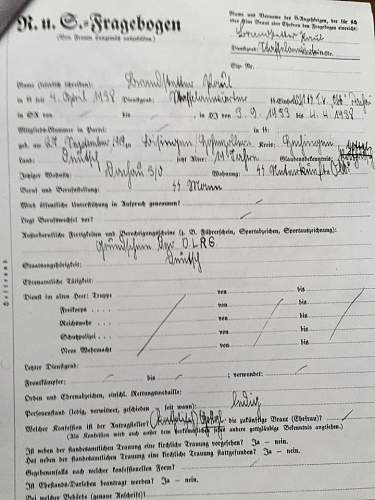 R. u. S.-Fragebogen
(Von Frauen sinngemäß auszufüllen!)
Name und Vorname des SS-Angehörigen, der für sich
oder seine Braut oder Ehefrau den Fragebogen einreicht:
Dienstgrad:
Sip. Nr.
Name (leserlich schreiben):
in SS seit 4. April 1938 Dienstgrad: SS-Einheit:
in SA von bis , in HJ von 3.9.1933 bis 4.4.1938
Mitglieds-Nummer in Partei: in SS:
geb. am zu Kreis:
Land: jetzt Alter: Glaubensbekenntnis:
Jetziger Wohnsitz: Dachau 3/O Wohnung: SS
Beruf und Berufsstellung: SS Mann
Wird öffentliche Unterstützung in Anspruch genommen?
Liegt Berufswechsel vor?
Außerberufliche Fertigkeiten und Berechtigungsscheine (z. B. Führerschein, Sportabzeichen, Sportauszeichnung):
Grundschein der DLRG
Staatsangehörigkeit: Deutsch
Ehrenamtliche Tätigkeit:
Dienst im alten Heer: Truppe von bis
Freikorps von bis
Reichswehr von bis
Schutzpolizei von bis
Neue Wehrmacht von bis
Letzter Dienstgrad:
Frontkämpfer: bis ; verwundet:
Orden und Ehrenabzeichen, einschl. Rettungsmedaille:
Personenstand (ledig, verwitwet, geschieden seit wann): ledig
Welcher Konfession ist der Antragsteller? die zukünftige Braut (Ehefrau)?
(Als Konfession wird auch außer dem herkömmlichen jedes andere gottgläubige Bekenntnis angesehen.)
Ist neben der standesamtlichen Trauung eine kirchliche Trauung vorgesehen? Ja – nein.
Hat neben der standesamtlichen Trauung eine kirchliche Trauung stattgefunden? Ja – nein.
Gegebenenfalls nach welcher konfessionellen Form?
Ist Ehestands-Darlehen beantragt worden? Ja – nein.
Bei welcher Behörde (genaue Anschrift)?